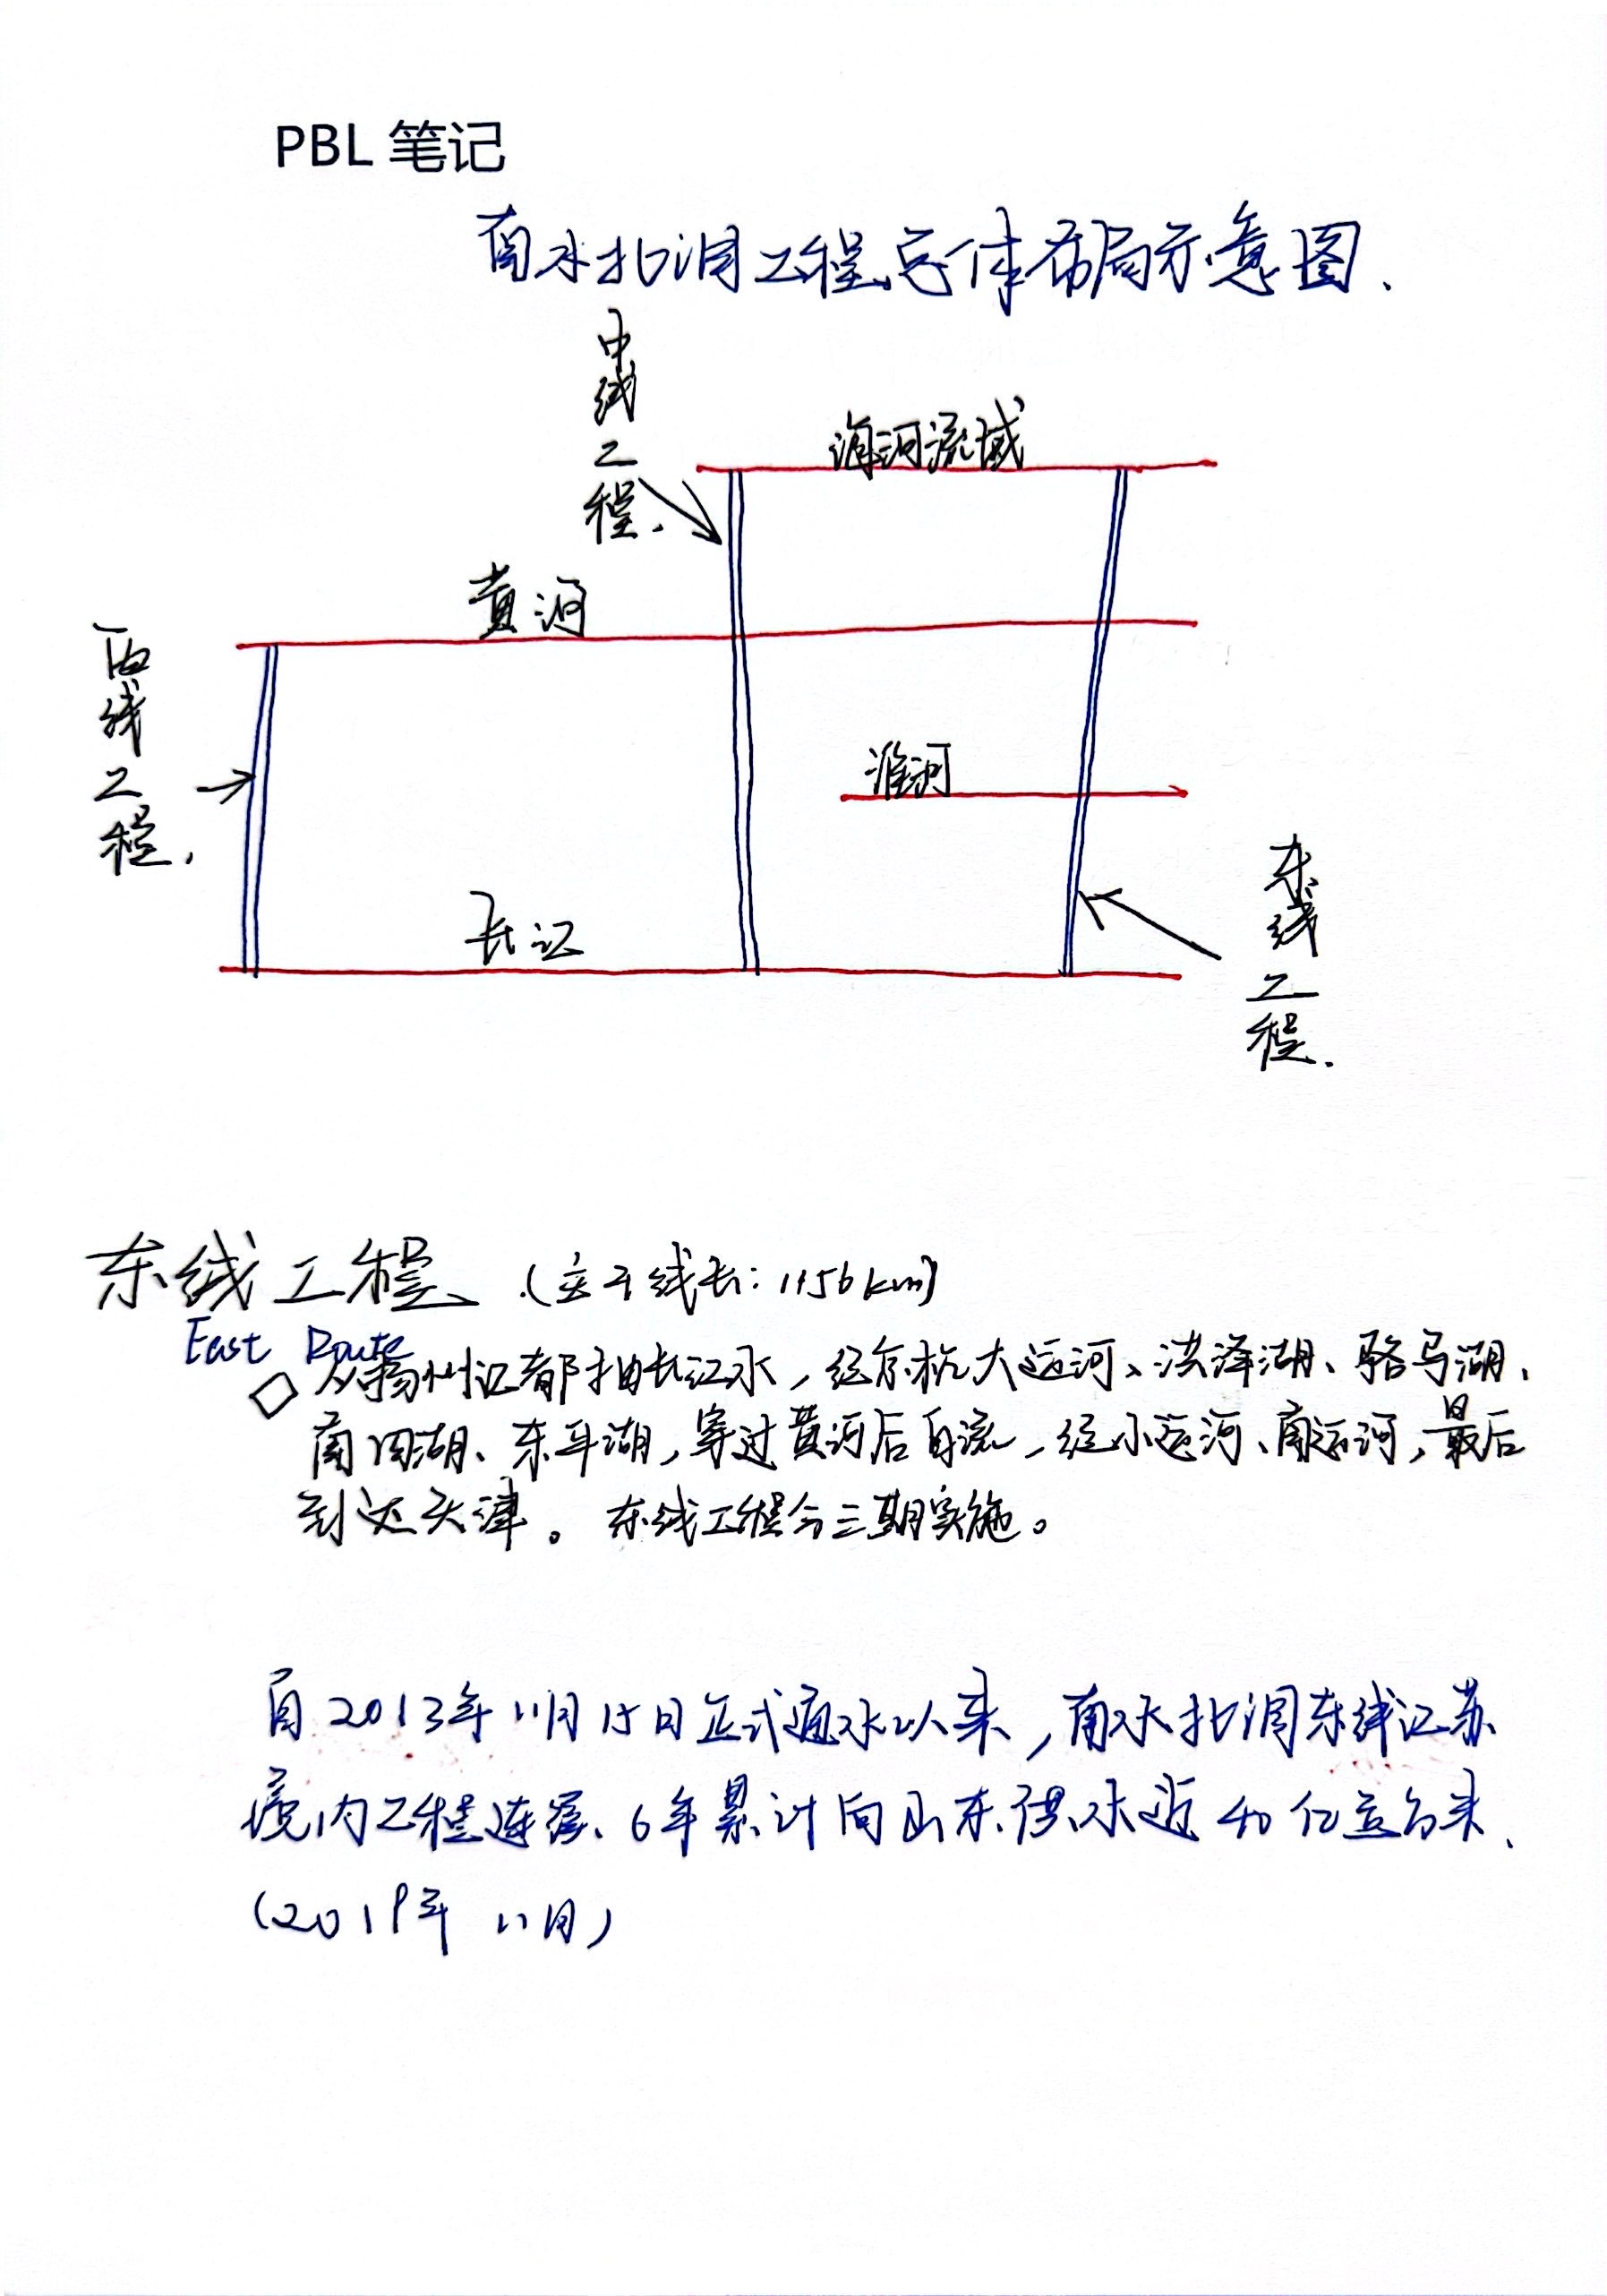 PBL 笔记
南水北调工程总体布局示意图.
中线工程.
海河流域
黄河
西线工程.
淮河
长江
东线工程.
东线工程 (主干线长: 1156km)
East Route
从扬州江都抽长江水，经京杭大运河、洪泽湖、骆马湖、
南四湖、东平湖，穿过黄河后自流，经小运河、南运河，最后
到达天津。东线工程分三期实施。
自2013年11月15日正式通水以来，南水北调东线江苏
境内工程连续、6年累计向山东供水近40亿立方米.
(2019年 11月)